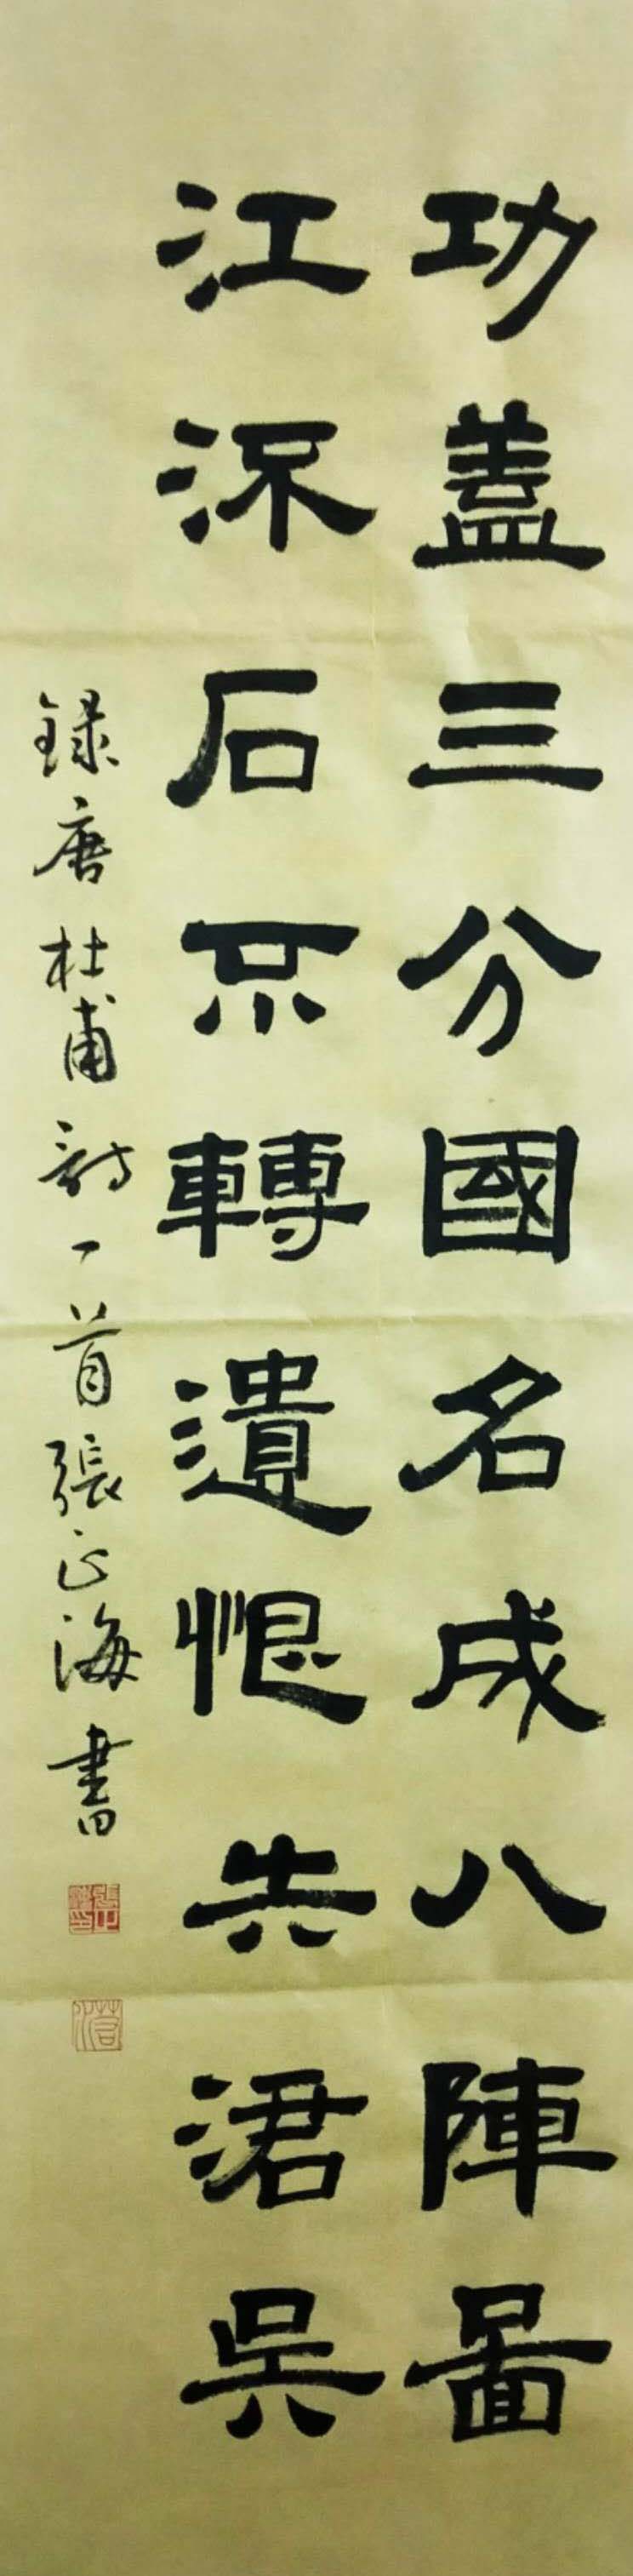 功蓋三分國名成八陣圖
江㳅石不轉遺恨失涒吳
錄唐杜甫詩一首張正海書